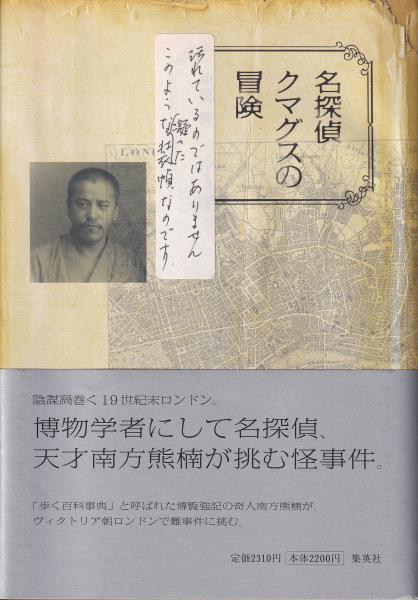 名探偵
クマグスの
冒険
汚れているのではありません
凝った
このような装幀なのです。
陰謀渦巻く19世紀末ロンドン。
博物学者にして名探偵、
天才南方熊楠が挑む怪事件。
「歩く百科事典」と呼ばれた博覧強記の奇人南方熊楠が、
ヴィクトリア朝ロンドンで難事件に挑む。
定価2310円 本体2200円 集英社